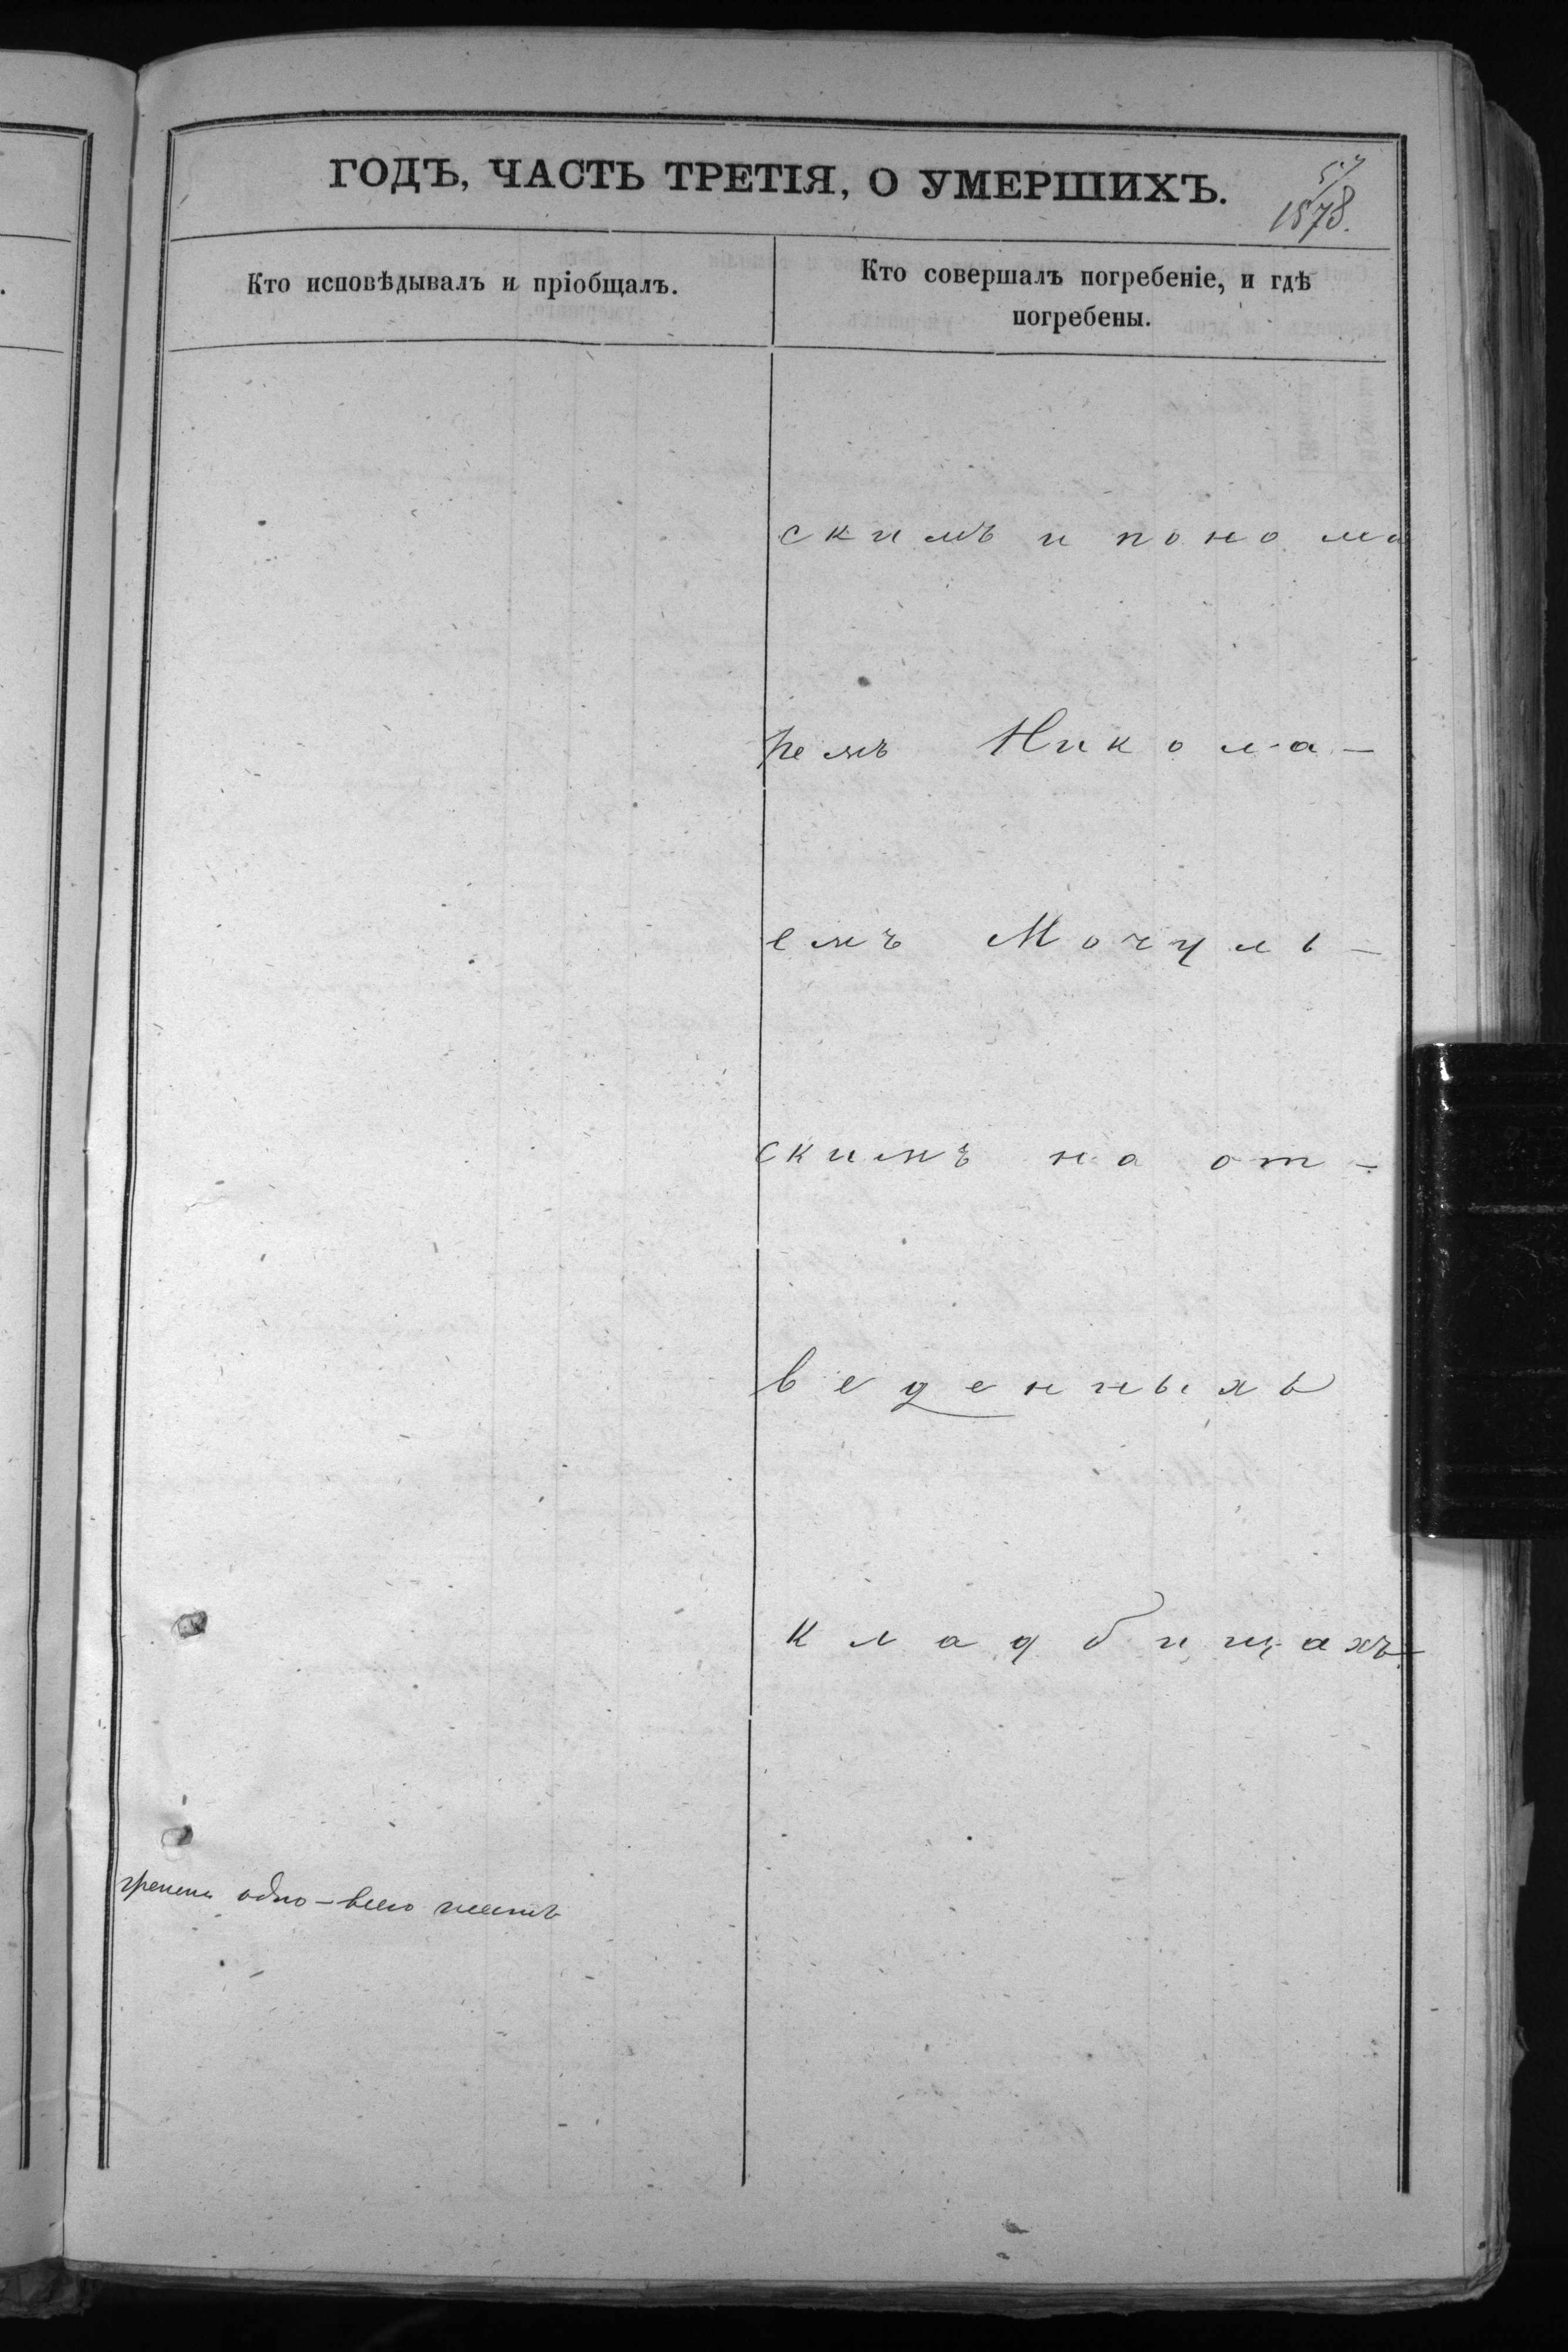 ГОДЪ, ЧАСТЬ ТРЕТІЯ, О УМЕРШИХЪ.
57
1878.
Кто исповѣдывалъ и пріобщалъ.
Кто совершалъ погребеніе, и гдѣ
погребены.
скимъ и понома
ремъ Никола-
емъ Мочуль-
скимъ на от-
веденныхъ
кладбищахъ.
одно - всего шесть